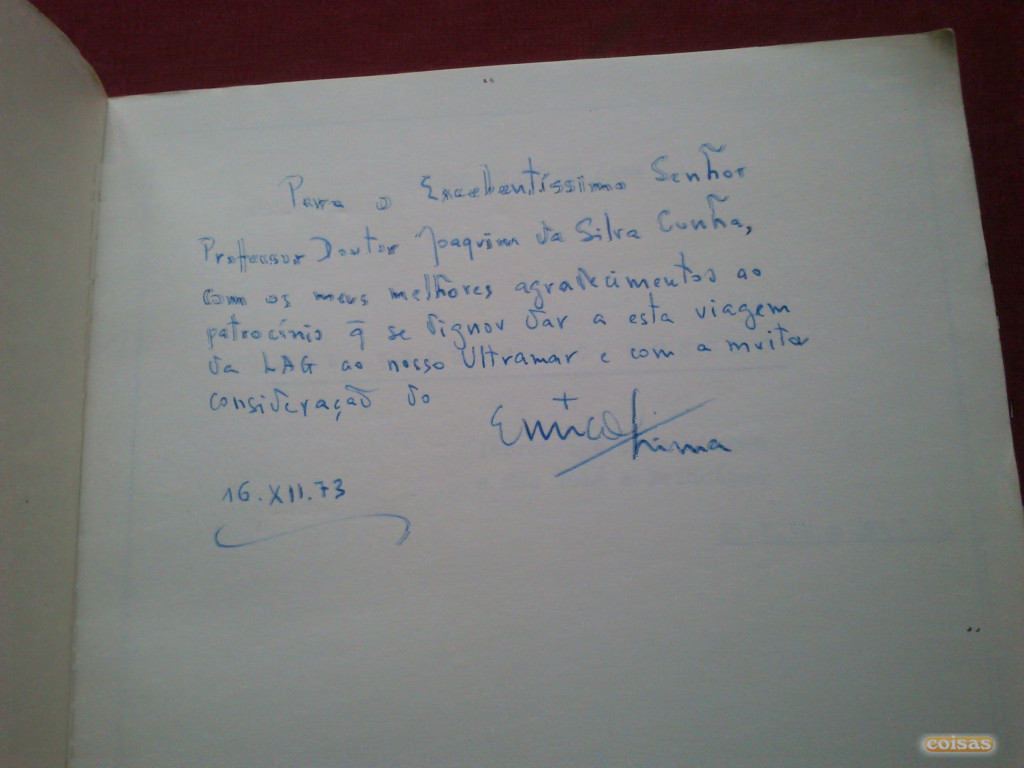 Para o Excelentíssimo Senhor
Professor Doutor Joaquim da Silva Cunha,
com os meus melhores agradecimentos ao
patrocínio q̄ se dignou dar a esta viagem
da LAG ao nosso Ultramar e com a muita
consideração do
+
Lima
16.XII.73
coisas